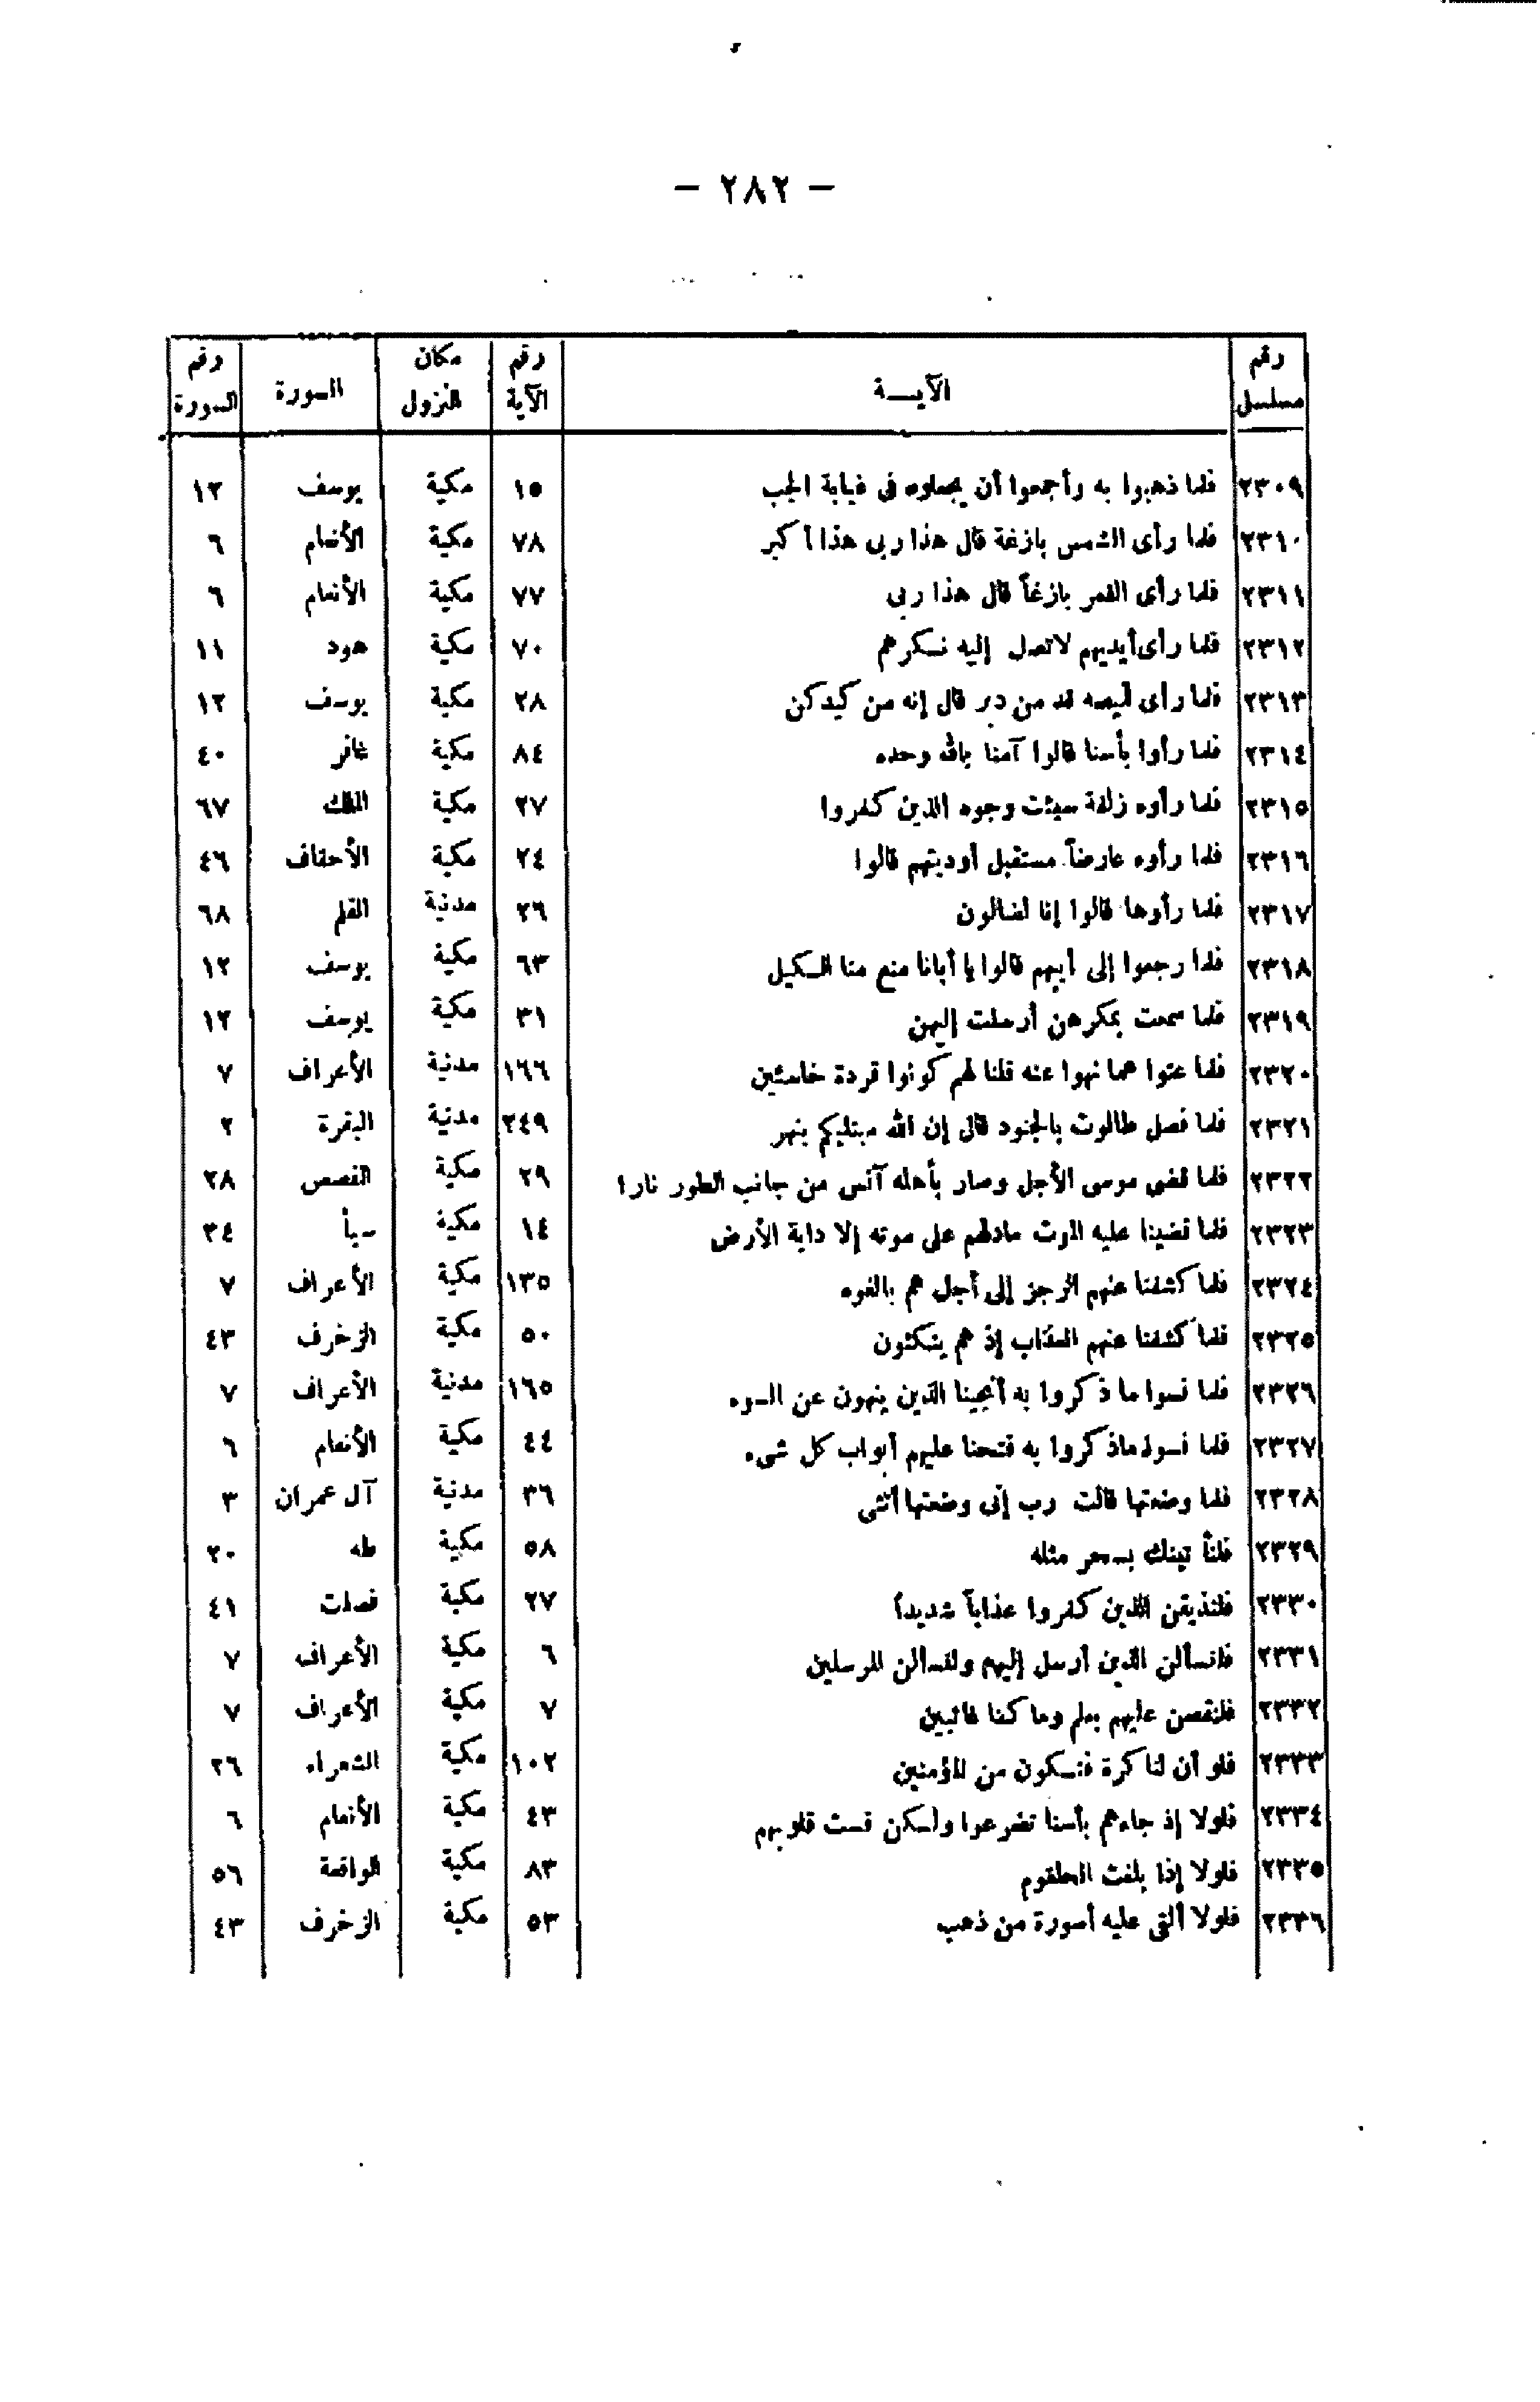 — ٢٨٢ —
رقم مسلسل الآيـــة رقم الآية مكان النزول السورة رقم السورة
٢٣٠٩ فلما ذهبوا به وأجمعوا أن يجعلوه فى غيابة الجب ١٥ مكية يوسف ١٢
٢٣١٠ فلما رأى الشمس بازغة قال هذا ربى هذا أكبر ٧٨ مكية الأنعام ٦
٢٣١١ فلما رأى القمر بازغاً قال هذا ربى ٧٧ مكية الأنعام ٦
٢٣١٢ فلما رأى أيديهم لاتصل إليه نكرهم ٧٠ مكية هود ١١
٢٣١٣ فلما رأى قميصه قد من دبر قال إنه من كيدكن ٢٨ مكية يوسف ١٢
٢٣١٤ فلما رأوا بأسنا قالوا آمنا بالله وحده ٨٤ مكية غافر ٤٠
٢٣١٥ فلما رأوه زلفة سيئت وجوه الذين كفروا ٢٧ مكية الملك ٦٧
٢٣١٦ فلما رأوه عارضاً مستقبل أوديتهم قالوا ٢٤ مكية الأحقاف ٤٦
٢٣١٧ فلما رأوها قالوا إنا لضالون ٢٦ مدنية القلم ٦٨
٢٣١٨ فلما رجعوا إلى أبيهم قالوا يا أبانا منع منا الكيل ٦٣ مكية يوسف ١٢
٢٣١٩ فلما سمعت بمكرهن أرسلت إليهن ٣١ مكية يوسف ١٢
٢٣٢٠ فلما عتوا عما نهوا عنه قلنا لهم كونوا قردة خاسئين ١٦٦ مدنية الأعراف ٧
٢٣٢١ فلما فصل طالوت بالجنود قال إن الله مبتليكم بنهر ٢٤٩ مدنية البقرة ٢
٢٣٢٢ فلما قضى موسى الأجل وسار بأهله آنس من جانب الطور نارا ٢٩ مكية القصص ٢٨
٢٣٢٣ فلما قضينا عليه الموت مادلهم على موته إلا دابة الأرض ١٤ مكية سبأ ٣٤
٢٣٢٤ فلما كشفنا عنهم الرجز إلى أجل هم بالغوه ١٣٥ مكية الأعراف ٧
٢٣٢٥ فلما كشفنا عنهم العذاب إذ هم ينكثون ٥٠ مكية الزخرف ٤٣
٢٣٢٦ فلما نسوا ما ذكروا به أنجينا الذين ينهون عن السوء ١٦٥ مدنية الأعراف ٧
٢٣٢٧ فلما نسوا ماذكروا به فتحنا عليهم أبواب كل شىء ٤٤ مكية الأنعام ٦
٢٣٢٨ فلما وضعتها قالت رب إنى وضعتها أنثى ٣٦ مدنية آل عمران ٣
٢٣٢٩ فلنأ تينك بسحر مثله ٥٨ مكية طه ٢٠
٢٣٣٠ فلنذيقن الذين كفروا عذاباً شديداً ٢٧ مكية فصلت ٤١
٢٣٣١ فلنسألن الذين أرسل إليهم ولنسألن المرسلين ٦ مكية الأعراف ٧
٢٣٣٢ فلنقصن عليهم بعلم وما كنا غائبين ٧ مكية الأعراف ٧
٢٣٣٣ فلو أن لنا كرة فنكون من المؤمنين ١٠٢ مكية الشعراء ٢٦
٢٣٣٤ فلولا إذ جاءهم بأسنا تضرعوا ولكن قست قلوبهم ٤٣ مكية الأنعام ٦
٢٣٣٥ فلولا إذا بلغت الحلقوم ٨٣ مكية الواقعة ٥٦
٢٣٣٦ فلولا ألقى عليه أسورة من ذهب ٥٣ مكية الزخرف ٤٣